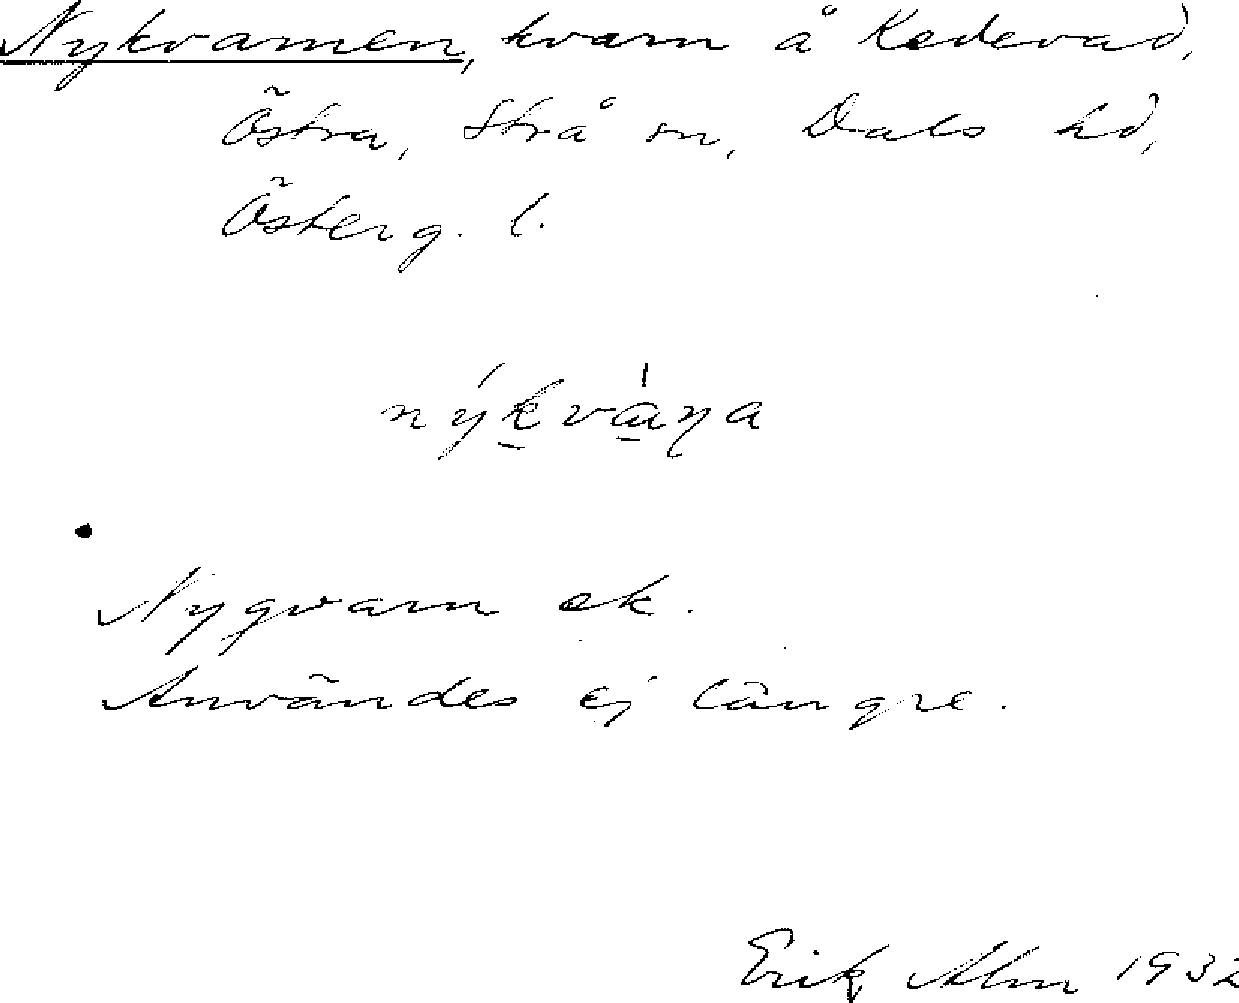 Nykvarnen, kvarn å Kedevad,
Östra, Strå sn, Dals hd,
Österg. l.
nýkvàŋa
Nygvarn ek.
Användes ej längre.
Erik Alm 1932